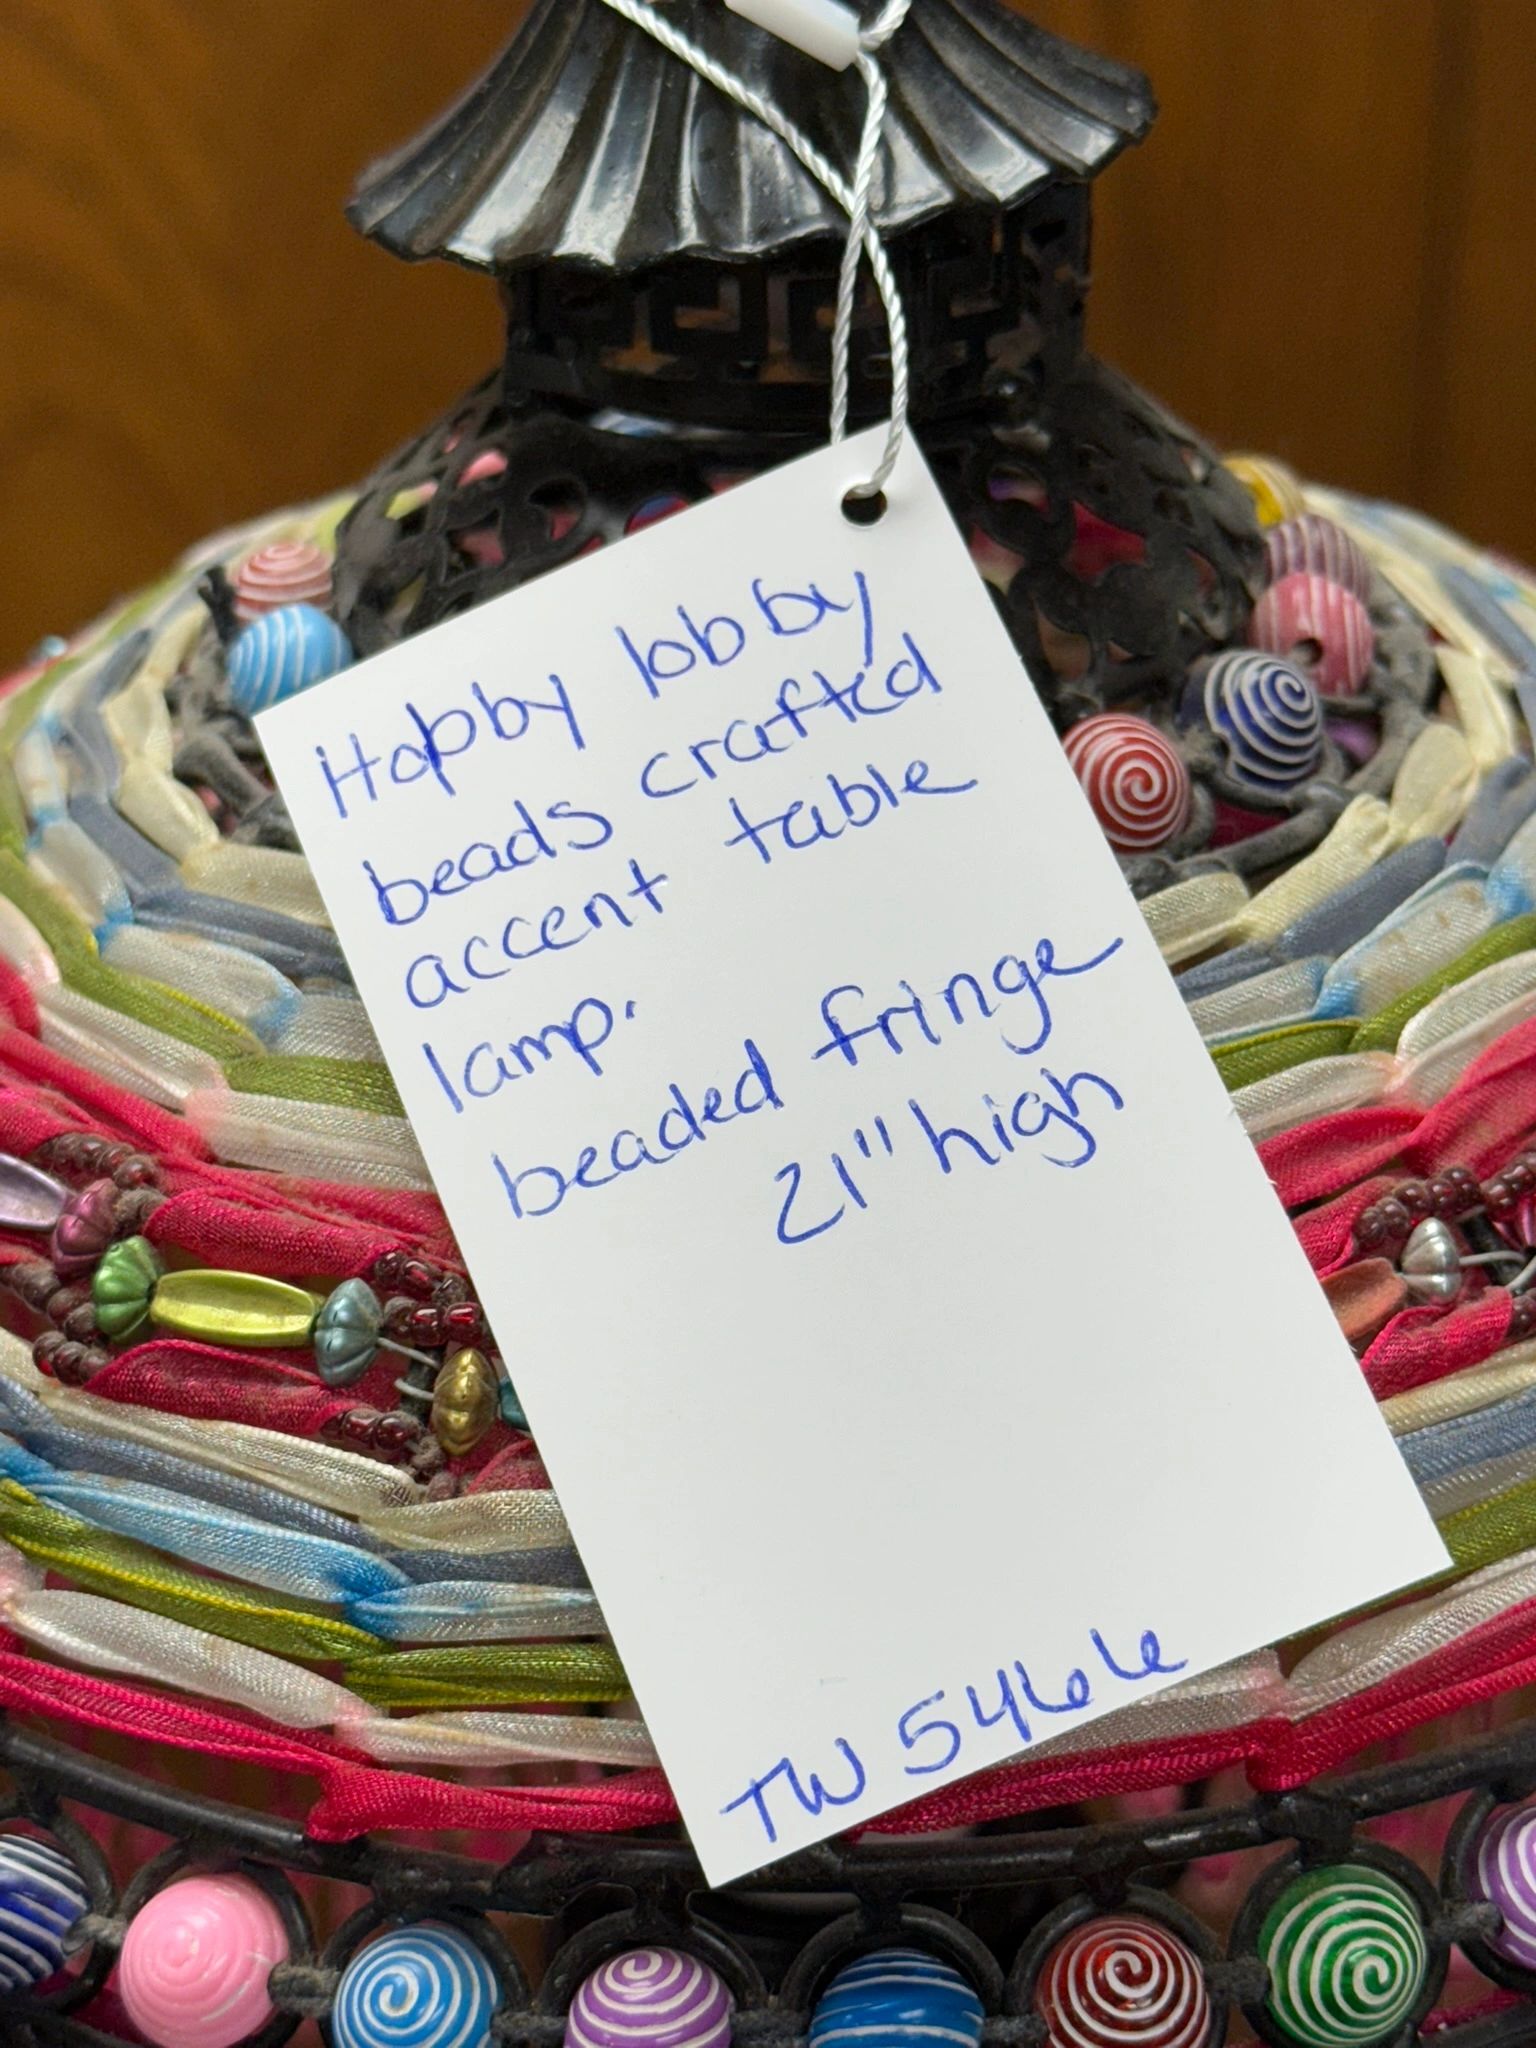 Hobby lobby
beads crafted
accent table
lamp.
beaded fringe
21" high
TW 5466